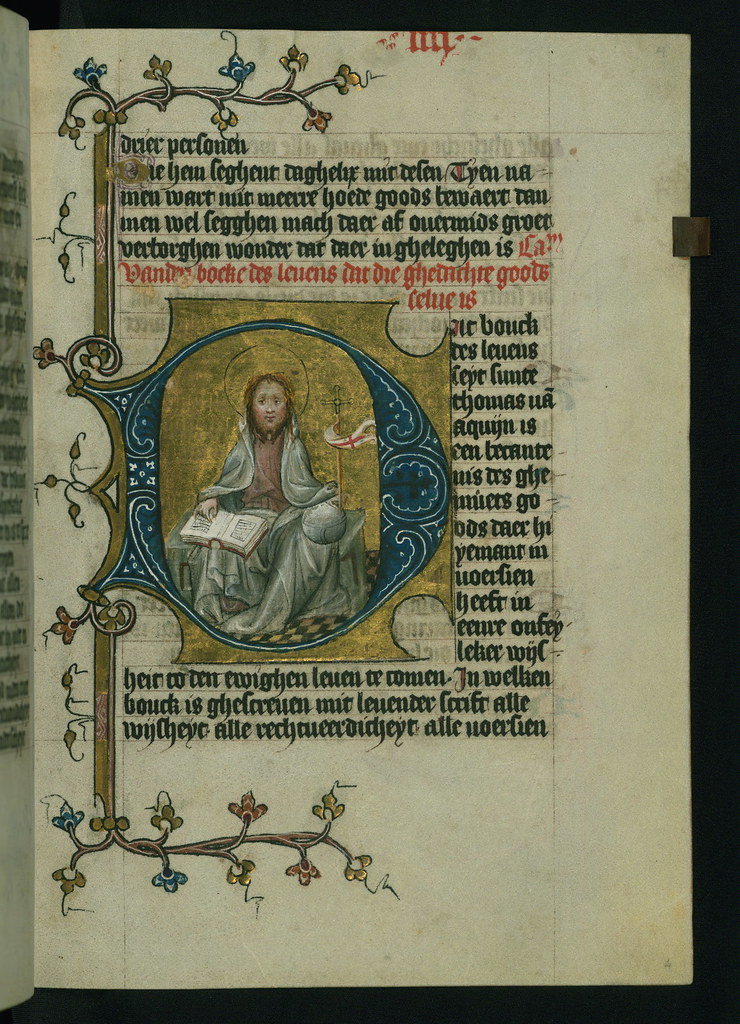 iiij
drier personen
Die hem seghent daghelix mit desen Tyen na
men wart mit meerre hoede goods bewaert dan
men wel segghen mach daer af ouermids groet
verborghen wonder dat daer in gheleghen is Ca.m
Vanden boeke des leuens dat die ghedachte goods
selue is
at bouck
des leuens
seyt sunte
thomas uā
aquijn is
een becante
nis des ghe
mūets go
ods daer hi
yemant in
uoersien
heeft in
eenre onfey
leker wijs
heit to den ewighen leuen te comen. In welken
bouck is ghescreuen mit leuender scrift alle
wijsheyt alle rechtueerdicheyt alle uoersien
4
4